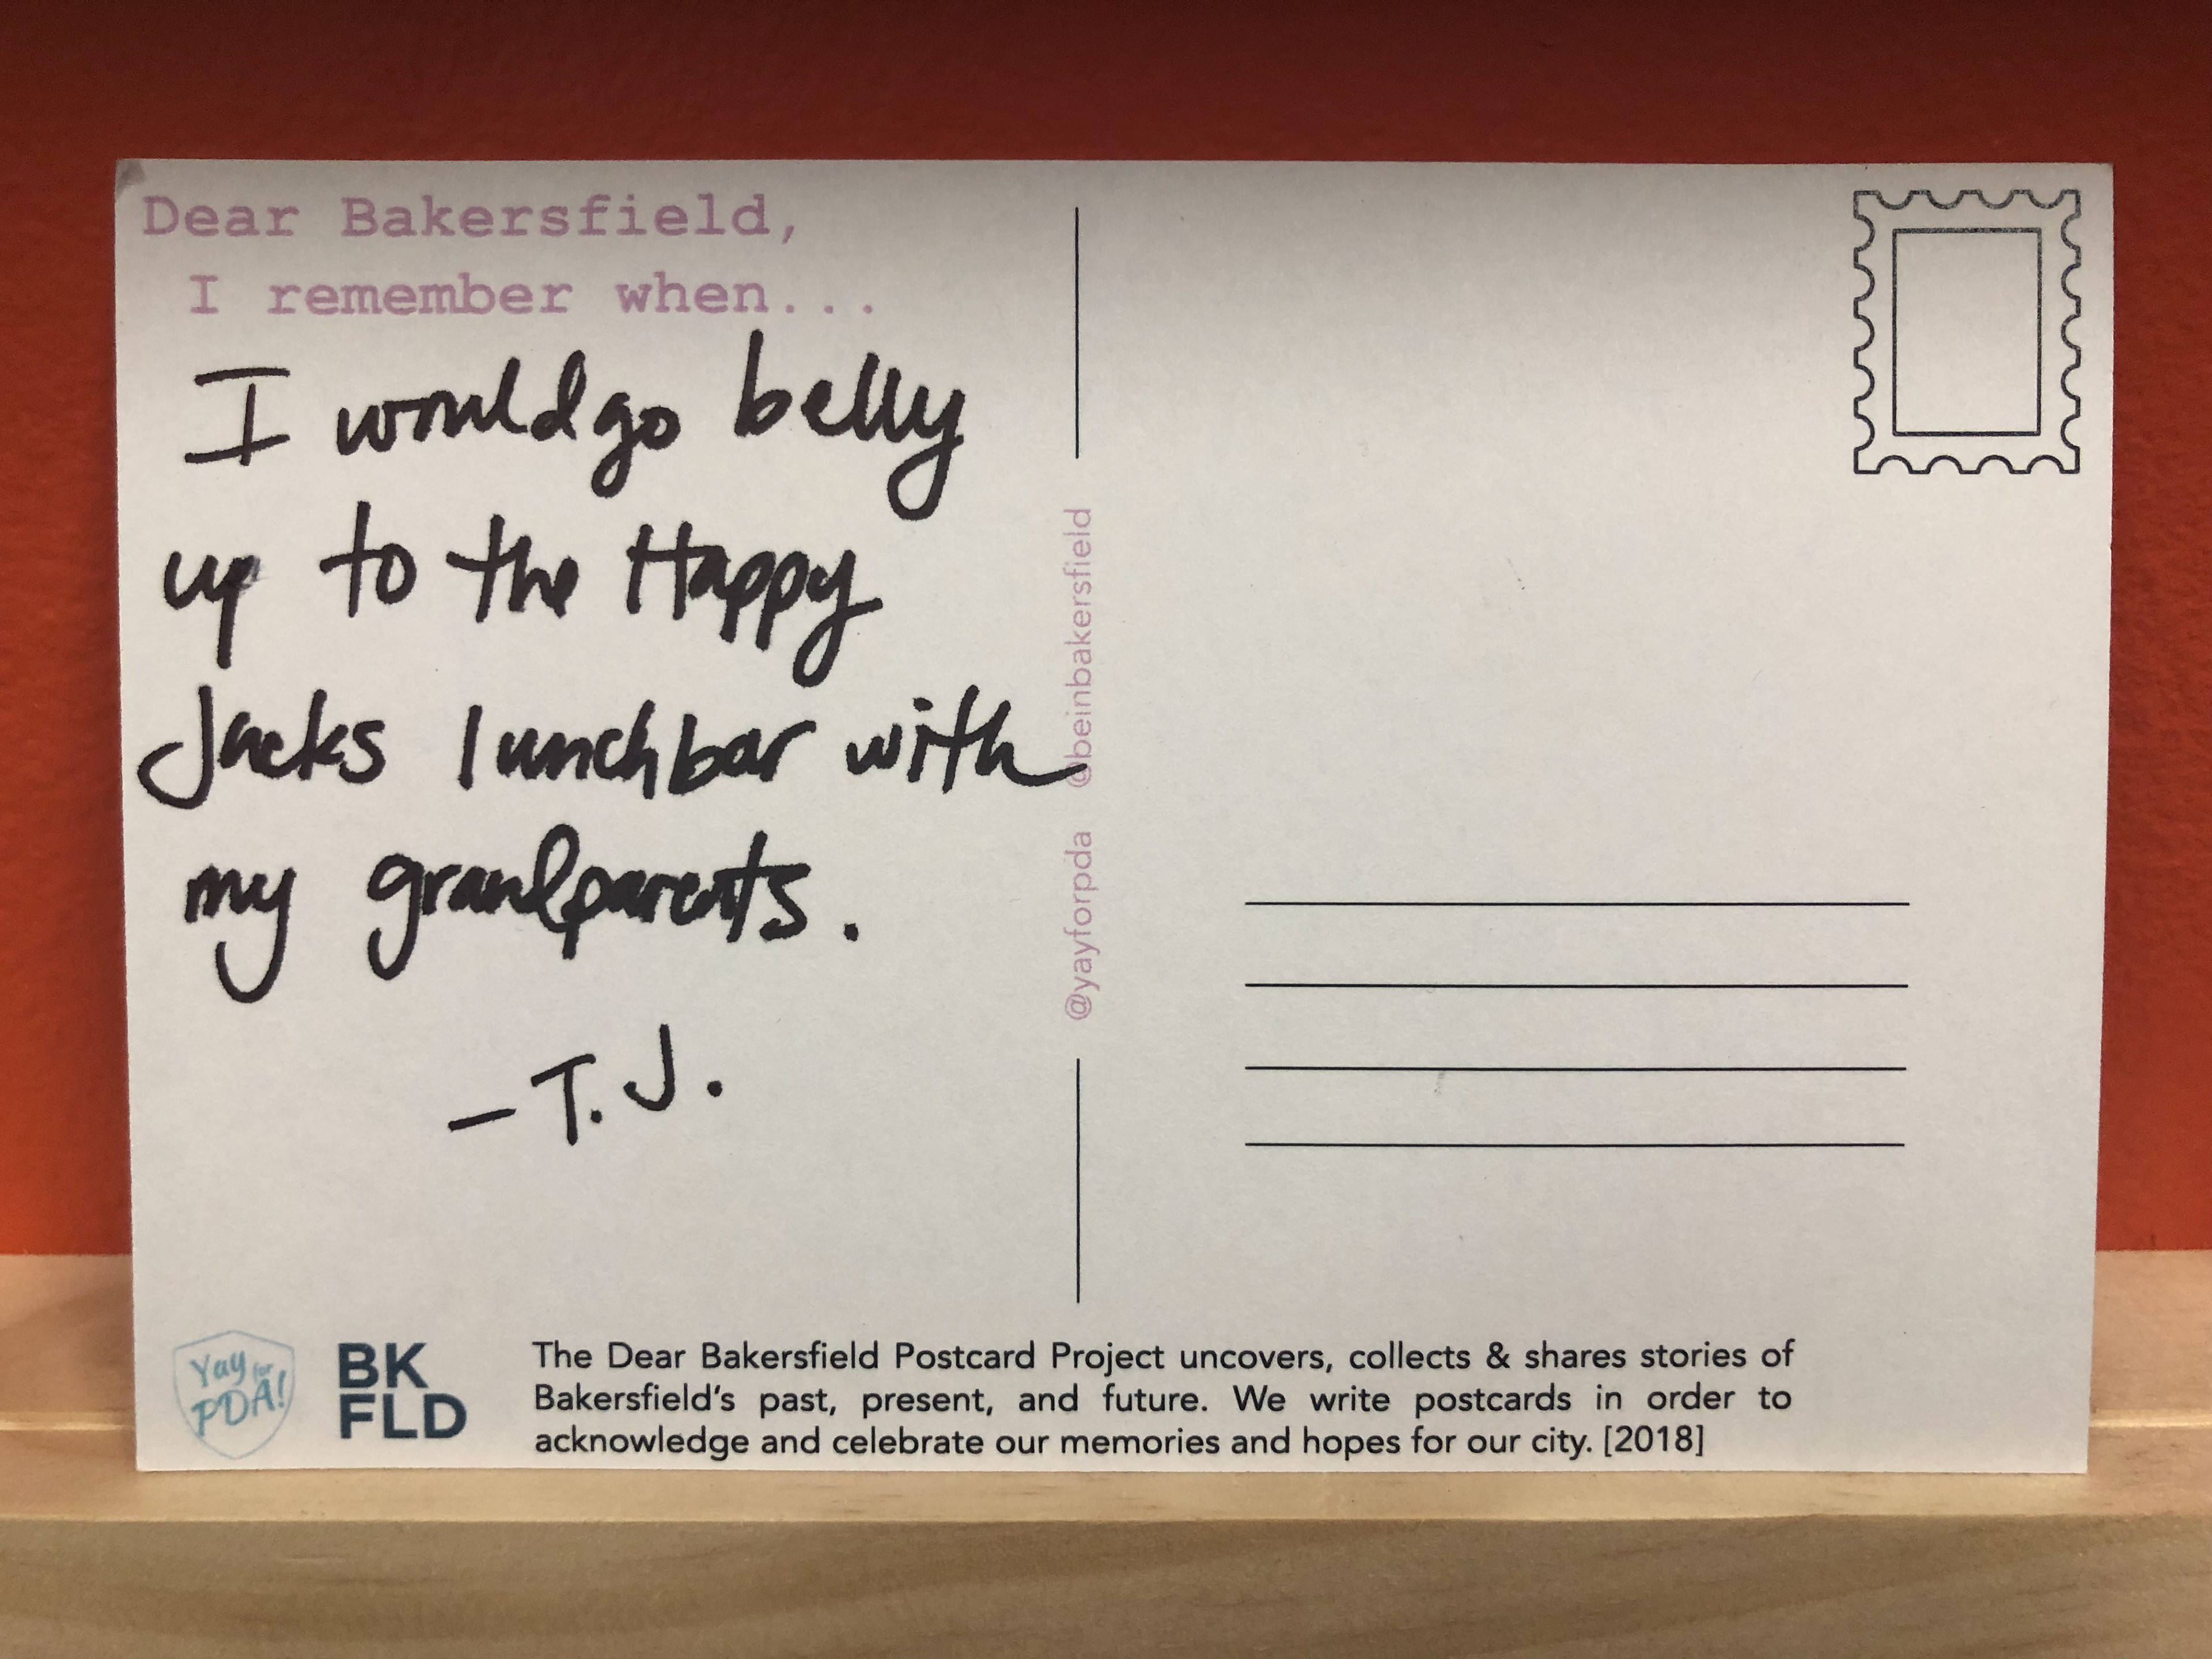 Dear Bakersfield,
I remember when...
I would go belly
up to the Happy
Jacks lunch bar with
my grandparents.
- T.J.
@yayforpda @beinbakersfield
Yay for
PDA!
BK
FLD
The Dear Bakersfield Postcard Project uncovers, collects & shares stories of
Bakersfield's past, present, and future. We write postcards in order to
acknowledge and celebrate our memories and hopes for our city. [2018]